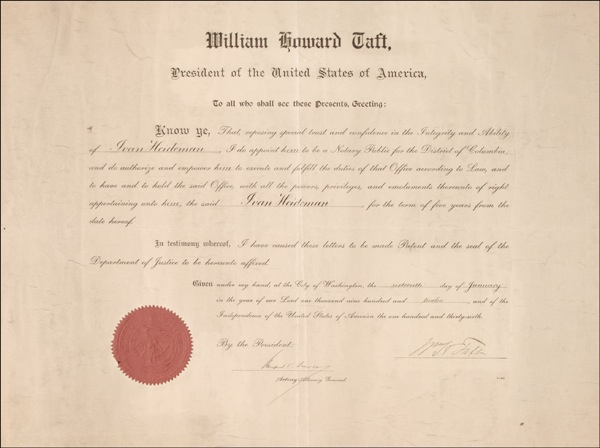 William Howard Taft,
President of the United States of America,
To all who shall see these Presents, Greeting:
Know ye, That, reposing special trust and confidence in the Integrity and Ability
of Ivan Heideman, I do appoint him to be a Notary Public for the District of Columbia,
and do authorize and empower him to execute and fulfill the duties of that Office according to Law, and
to have and to hold the said Office, with all the powers, privileges, and emoluments thereunto of right
appertaining unto him, the said Ivan Heideman for the term of five years from the
date hereof.
In testimony whereof, I have caused these letters to be made Patent and the seal of the
Department of Justice to be hereunto affixed.
Given under my hand, at the City of Washington, the sixteenth day of January
in the year of our Lord one thousand nine hundred and twelve, and of the
Independence of the United States of America the one hundred and thirty-sixth.
By the President:
Wm H Taft
Acting Attorney General.